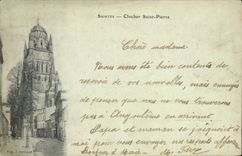 SAINTES - Clocher Saint-Pierre
Chère madame
Nous avons été bien contents de
recevoir de vos nouvelles, mais ennuyés
de penser que vous ne nous trouverons
pas à Angoulême en arrivant.
Papa et maman se joignent à
moi pour vous envoyer nos respects